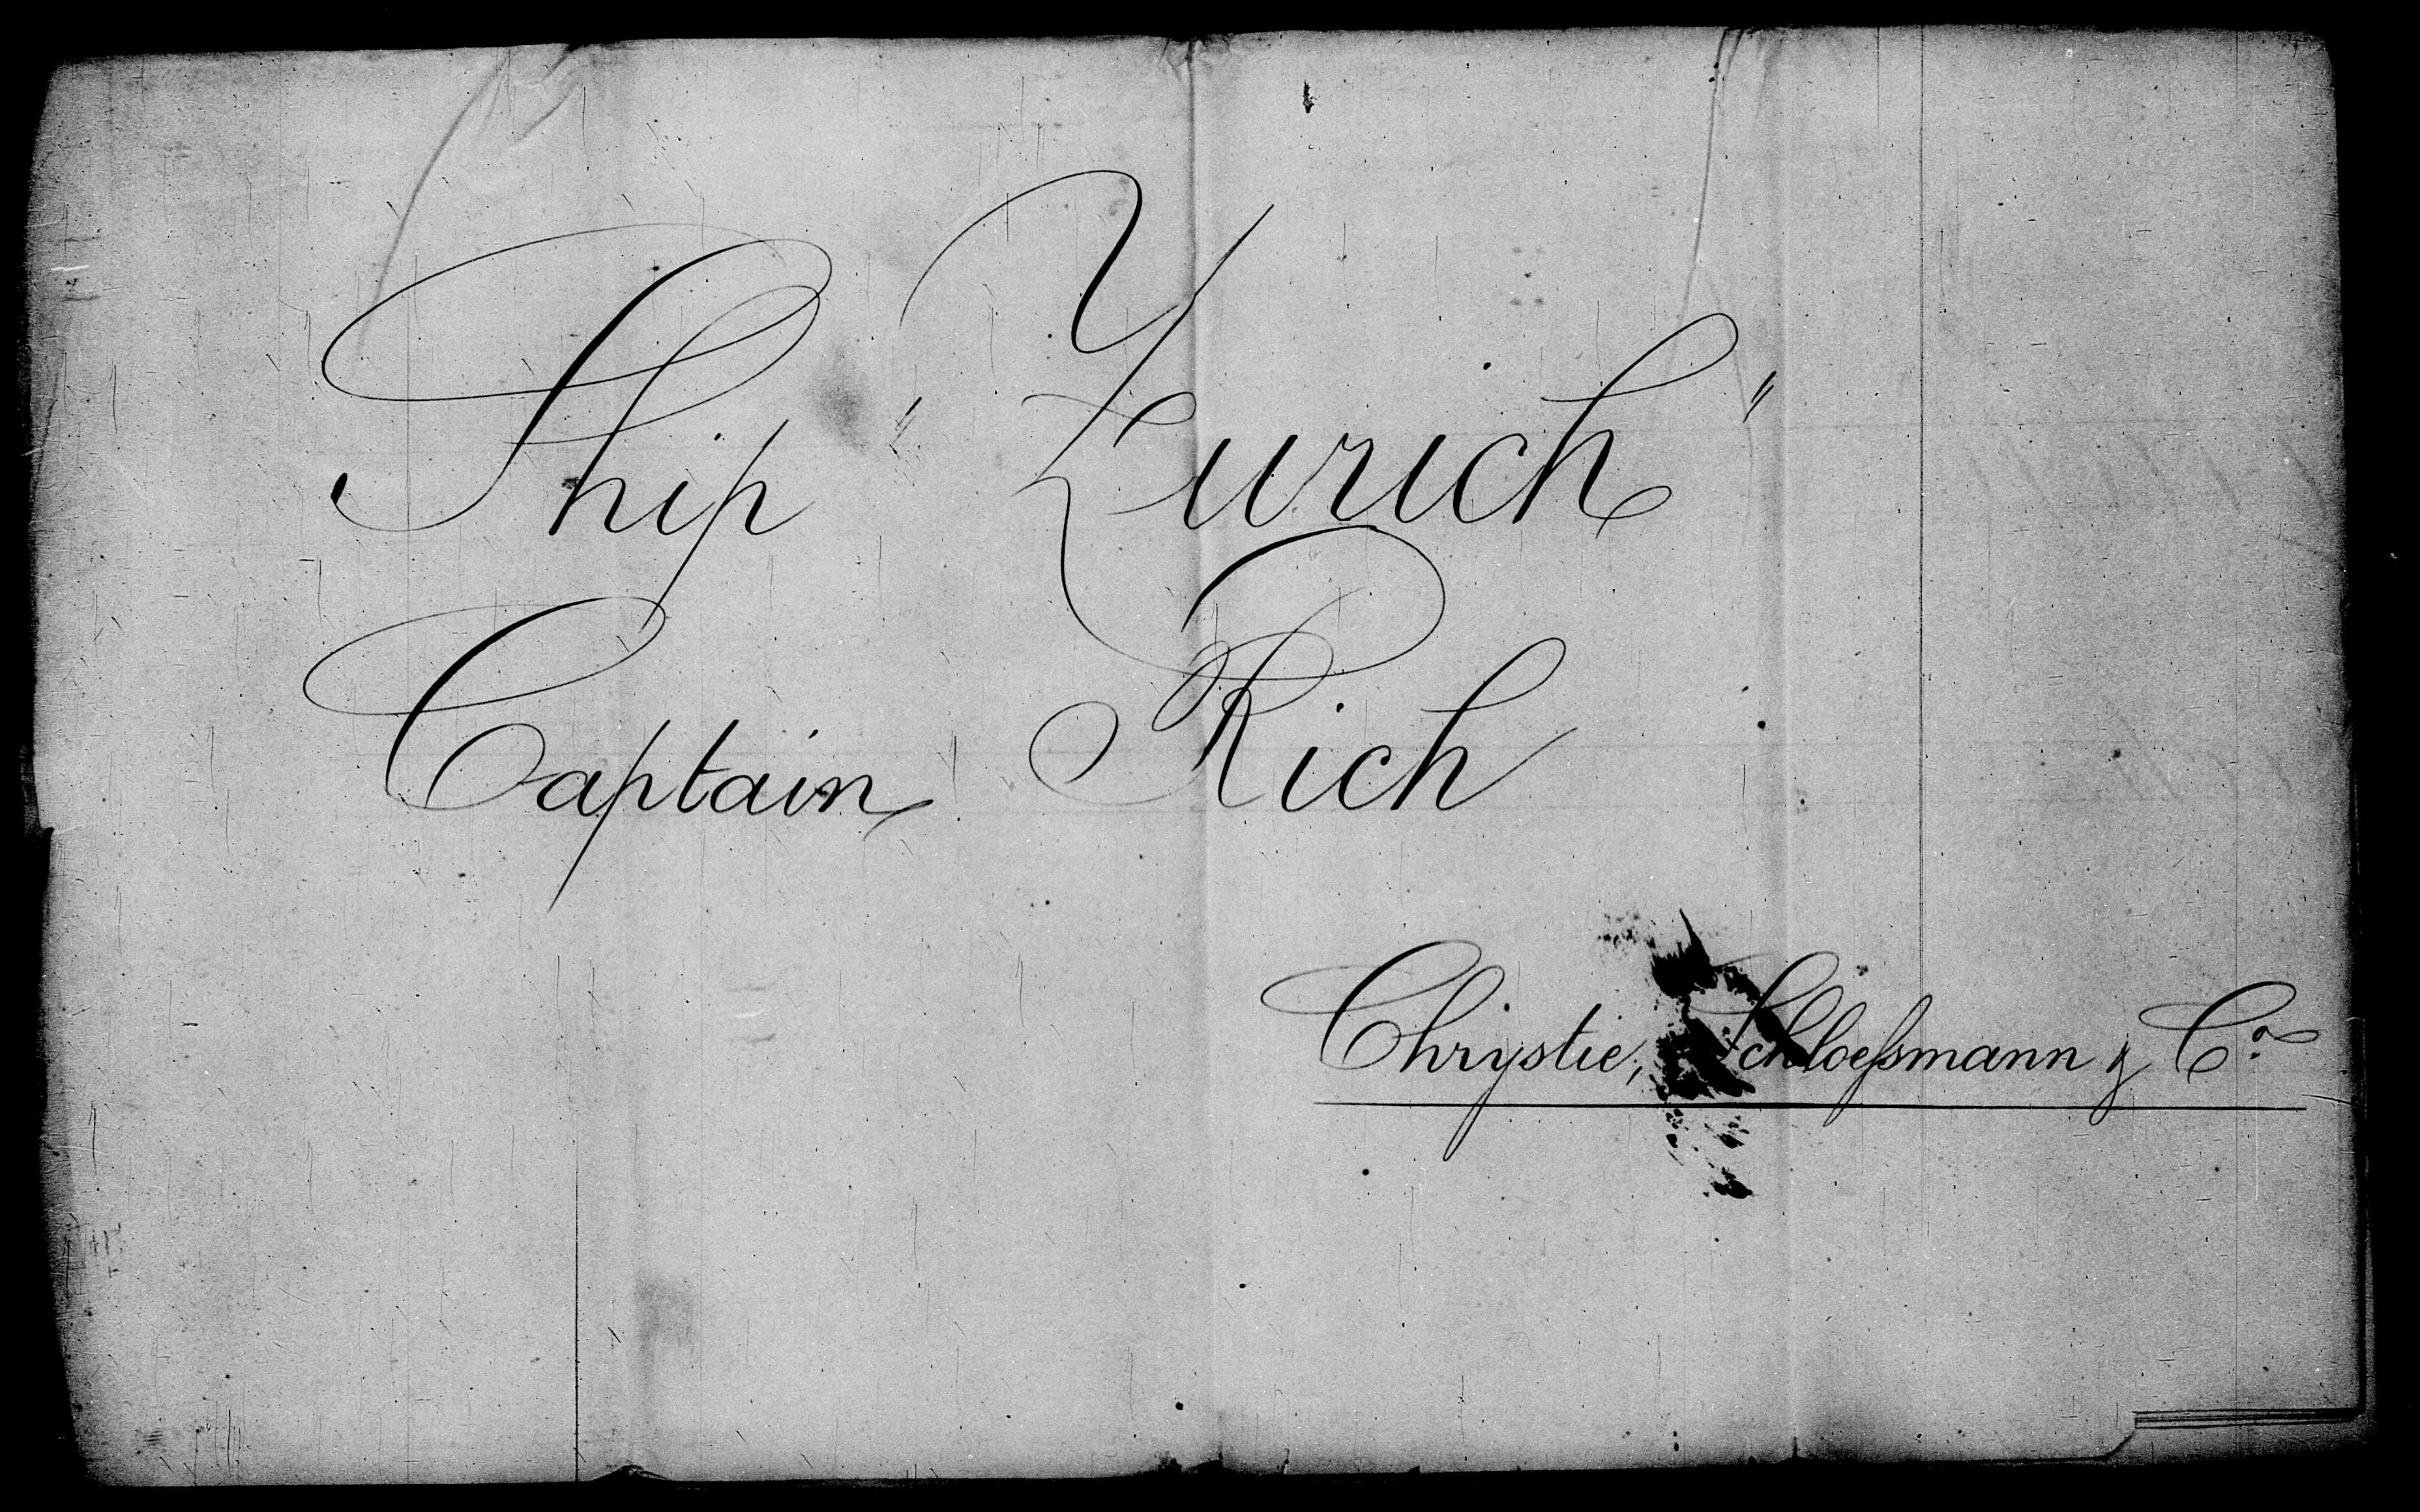 Ship "Zurich"
Captain Rich
Chrystie, Schloeſsmann & Co.